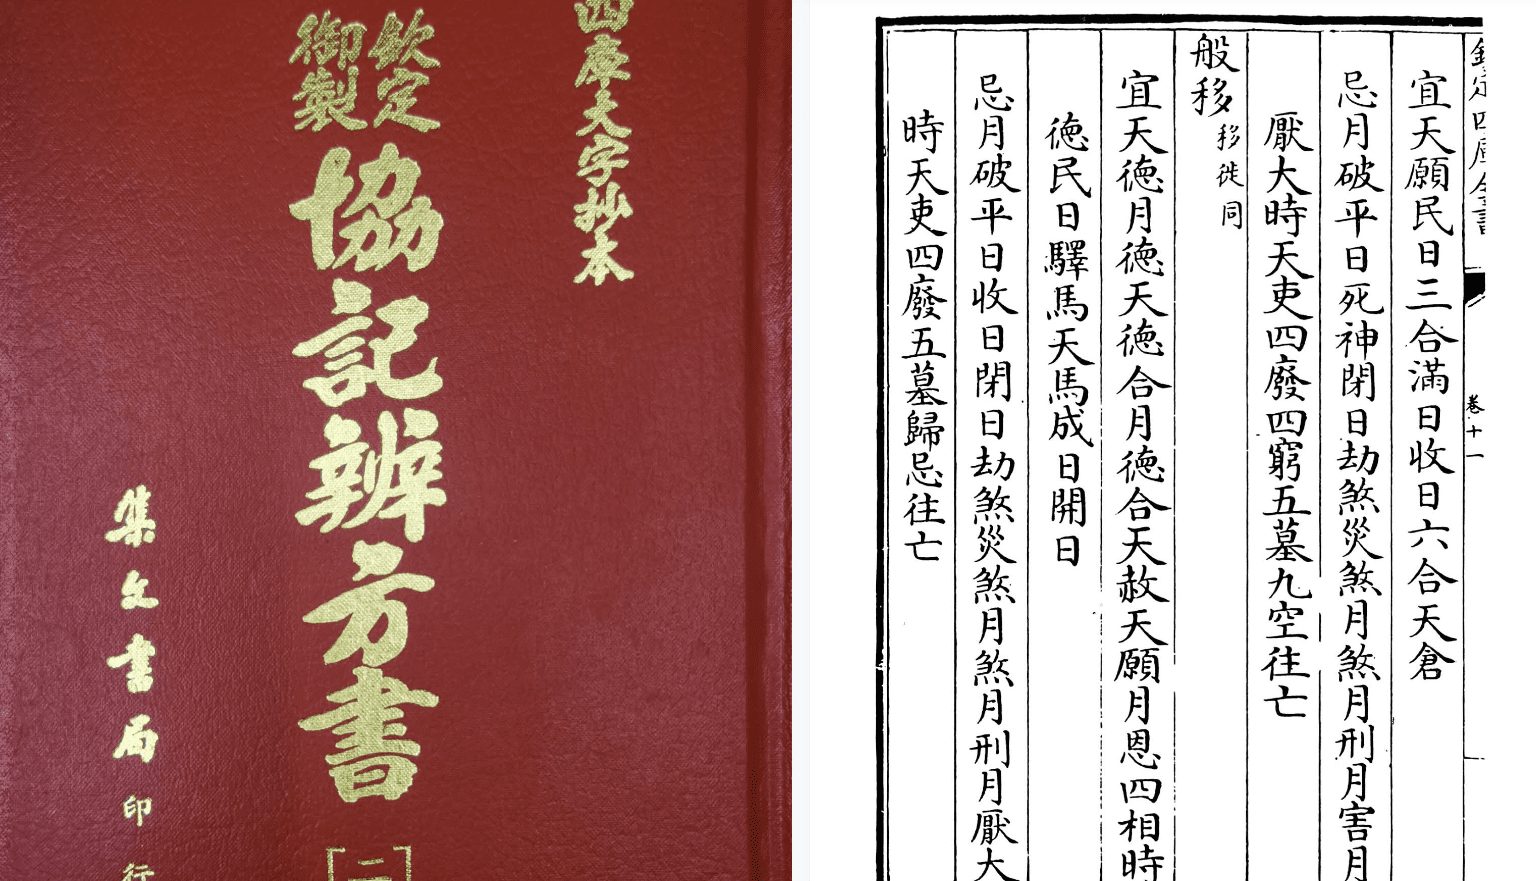 四庫大字抄本
欽定
御製
協記辨方書
[二]
集文書局印行
欽定四庫全書
卷十一
宜天願民日三合滿日收日六合天倉
忌月破平日死神閉日劫煞災煞月煞月刑月害月
厭大時天吏四廢四窮五墓九空往亡
般移移徙同
宜天徳月徳天徳合月徳合天赦天願月恩四相時
徳民日驛馬天馬成日開日
忌月破平日收日閉日劫煞災煞月煞月刑月厭大
時天吏四廢五墓歸忌往亡